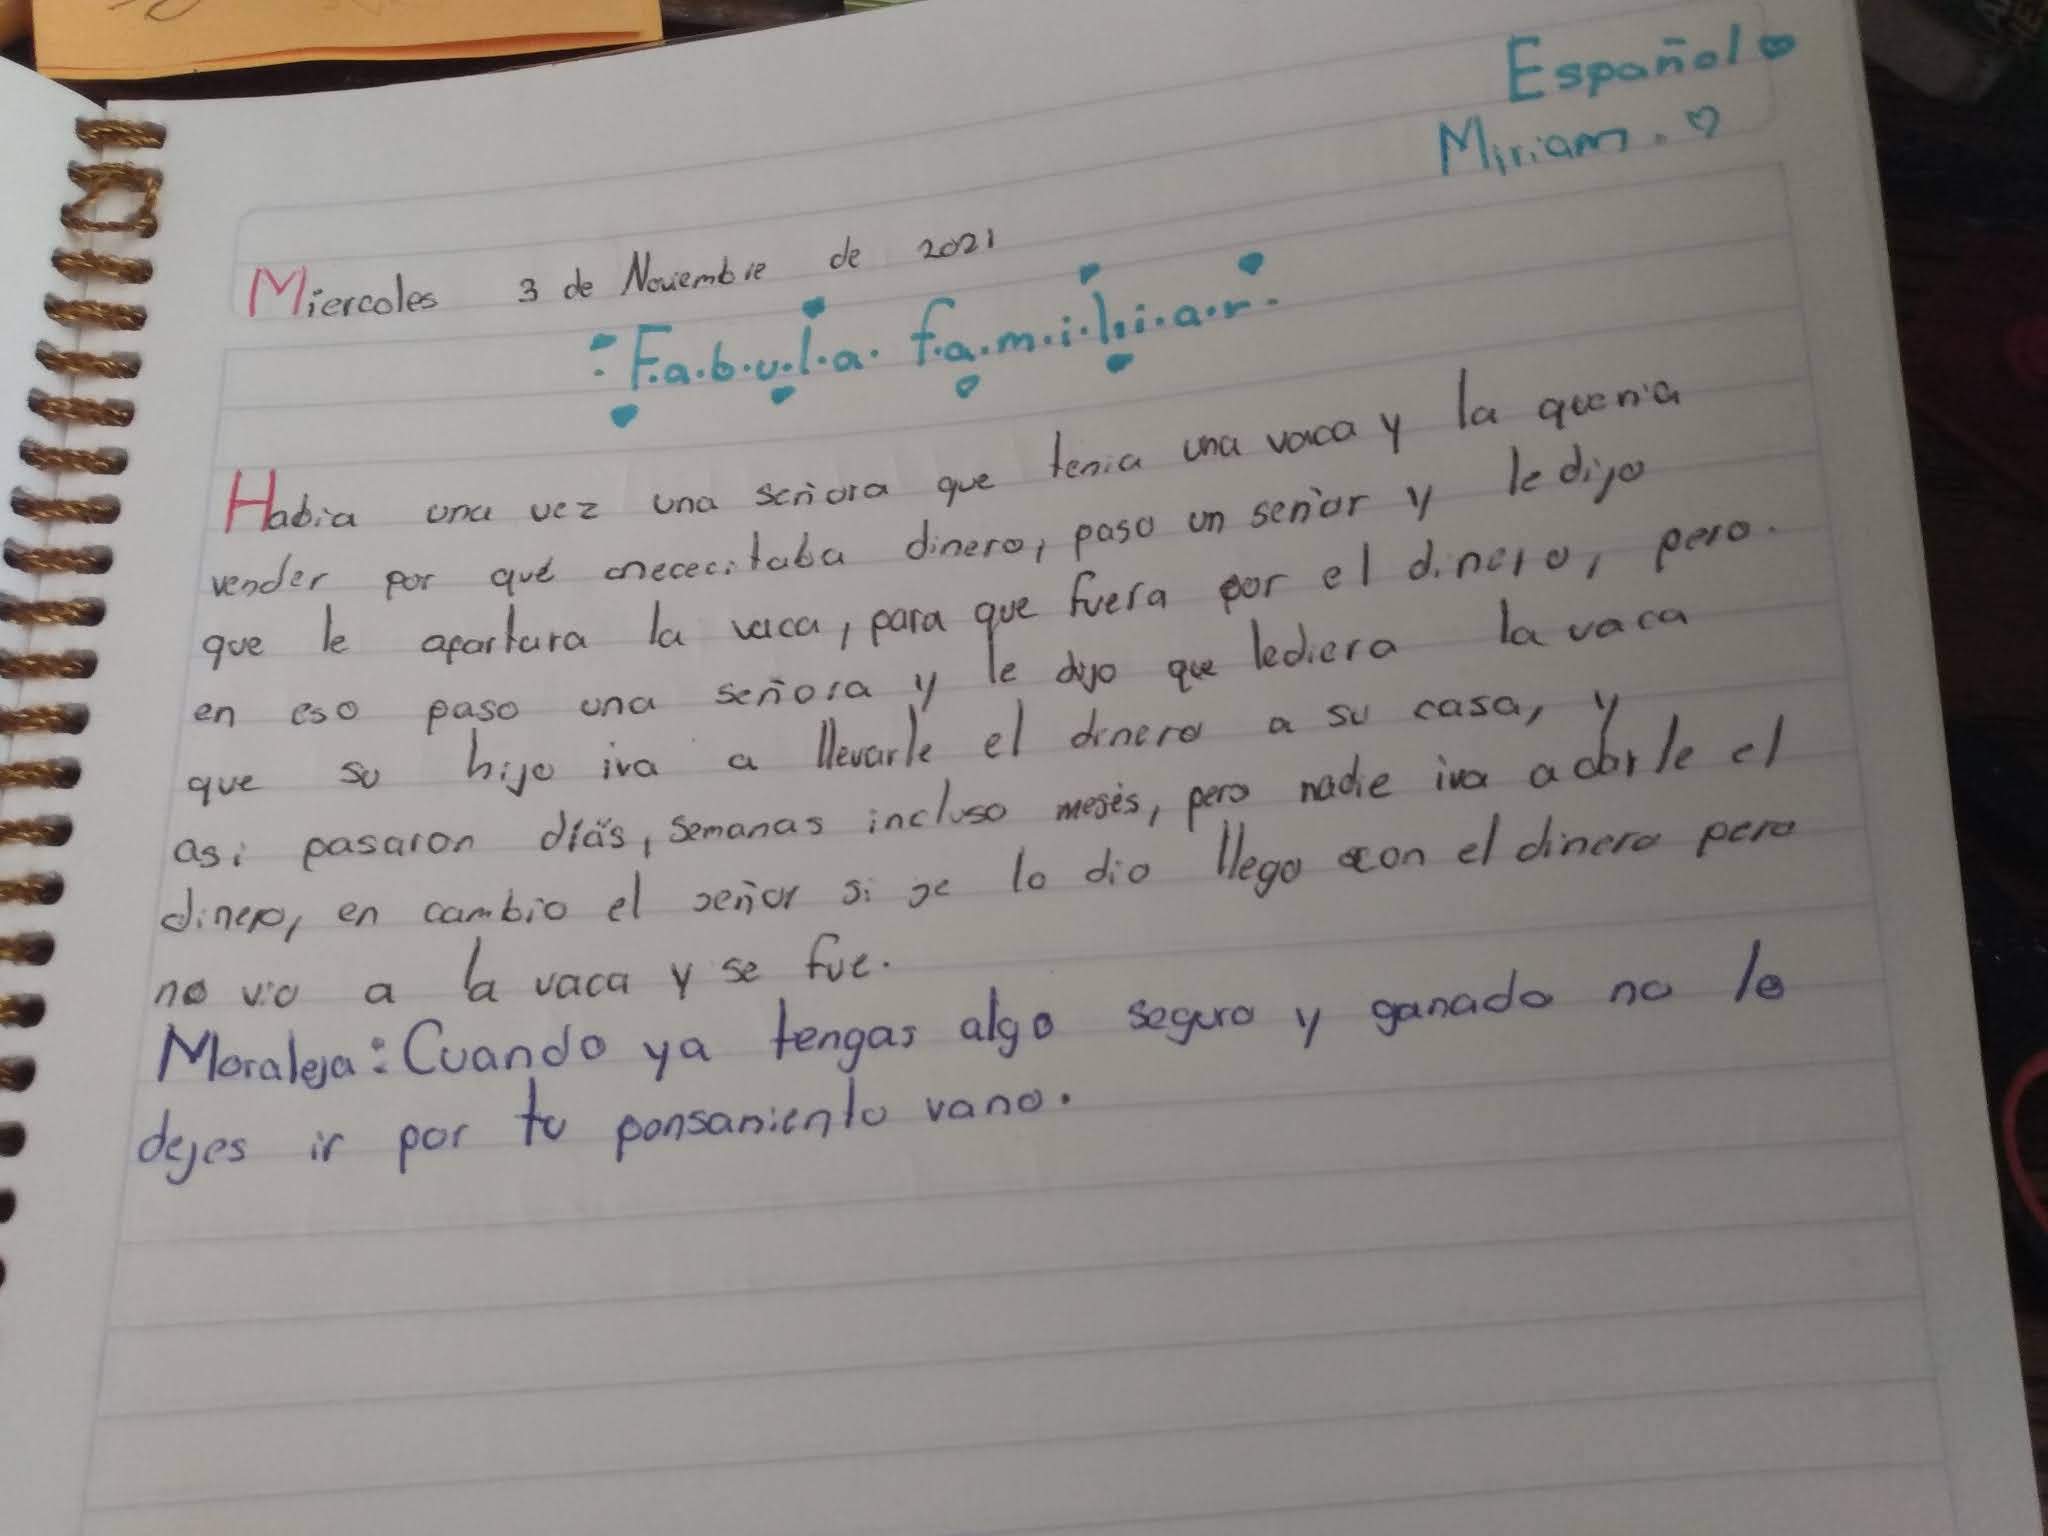 Español
Miriam.
Miercoles 3 de Noviembre de 2021
:F.a.b.u.l.a. f.a.m.i.l.i.a.r.
Habia una vez una señora que tenia una vaca y la queria
vender por qué nececitaba dinero, paso un señor y le dijo
que le apartara la vaca, para que fuera por el dinero, pero.
en eso paso una señora y le dijo que lediera la vaca
que su hijo iva a llevarle el dinero a su casa, y
asi pasaron días, semanas incluso mesés, pero nadie iva a darle el
dinero, en cambio el señor si se lo dio llego con el dinero pero
no vio a la vaca y se fue.
Moraleja: Cuando ya tengas algo seguro y ganado no lo
dejes ir por tu ponsamiento vano.